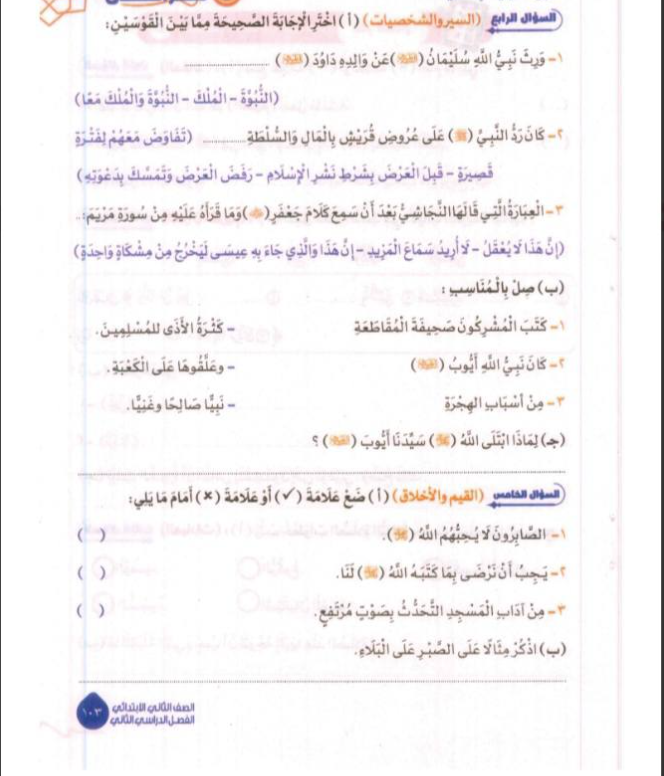 السؤال الرابع (السير والشخصيات) (أ) اخْتَرِ الْإِجَابَةَ الصَّحِيحَةَ مِمَّا بَيْنَ الْقَوْسَيْنِ:
١- وَرِثَ نَبِيُّ اللَّهِ سُلَيْمَانُ () عَنْ وَالِدِهِ دَاوُدَ () ............
(النُّبُوَّةَ - الْمُلْكَ - النُّبُوَّةَ وَالْمُلْكَ مَعًا)
٢- كَانَ رَدُّ النَّبِيِّ (ﷺ) عَلَى عُرُوضِ قُرَيْشٍ بِالْمَالِ وَالسُّلْطَةِ ............ (تَفَاوَضَ مَعَهُمْ لِفَتْرَةٍ
قَصِيرَةٍ - قَبِلَ الْعَرْضَ بِشَرْطِ نَشْرِ الْإِسْلَامِ - رَفَضَ الْعَرْضَ وَتَمَسَّكَ بِدَعْوَتِهِ)
٣- الْعِبَارَةُ الَّتِي قَالَهَا النَّجَاشِيُّ بَعْدَ أَنْ سَمِعَ كَلَامَ جَعْفَرٍ () وَمَا قَرَأَهُ عَلَيْهِ مِنْ سُورَةِ مَرْيَمَ:..
(إِنَّ هَذَا لَا يُعْقَلُ - لَا أُرِيدُ سَمَاعَ الْمَزِيدِ - إِنَّ هَذَا وَالَّذِي جَاءَ بِهِ عِيسَى لَيَخْرُجُ مِنْ مِشْكَاةٍ وَاحِدَةٍ)
(ب) صِلْ بِالْمُنَاسِبِ:
١- كَتَبَ الْمُشْرِكُونَ صَحِيفَةَ الْمُقَاطَعَةِ - كَثْرَةُ الْأَذَى لِلْمُسْلِمِينَ.
٢- كَانَ نَبِيُّ اللَّهِ أَيُّوبُ () - وَعَلَّقُوهَا عَلَى الْكَعْبَةِ.
٣- مِنْ أَسْبَابِ الْهِجْرَةِ - نَبِيًّا صَالِحًا وَغَنِيًّا.
(جـ) لِمَاذَا ابْتَلَى اللَّهُ () سَيِّدَنَا أَيُّوبَ ()؟
السؤال الخامس (القيم والأخلاق) (أ) ضَعْ عَلَامَةَ (✓) أَوْ عَلَامَةَ (×) أَمَامَ مَا يَلِي:
١- الصَّابِرُونَ لَا يُحِبُّهُمُ اللَّهُ (). ( )
٢- يَجِبُ أَنْ نَرْضَى بِمَا كَتَبَهُ اللَّهُ () لَنَا. ( )
٣- مِنْ آدَابِ الْمَسْجِدِ التَّحَدُّثُ بِصَوْتٍ مُرْتَفِعٍ. ( )
(ب) اذْكُرْ مِثَالًا عَلَى الصَّبْرِ عَلَى الْبَلَاءِ.
الصف الثاني الابتدائي
الفصل الدراسي الثاني
١٠٣